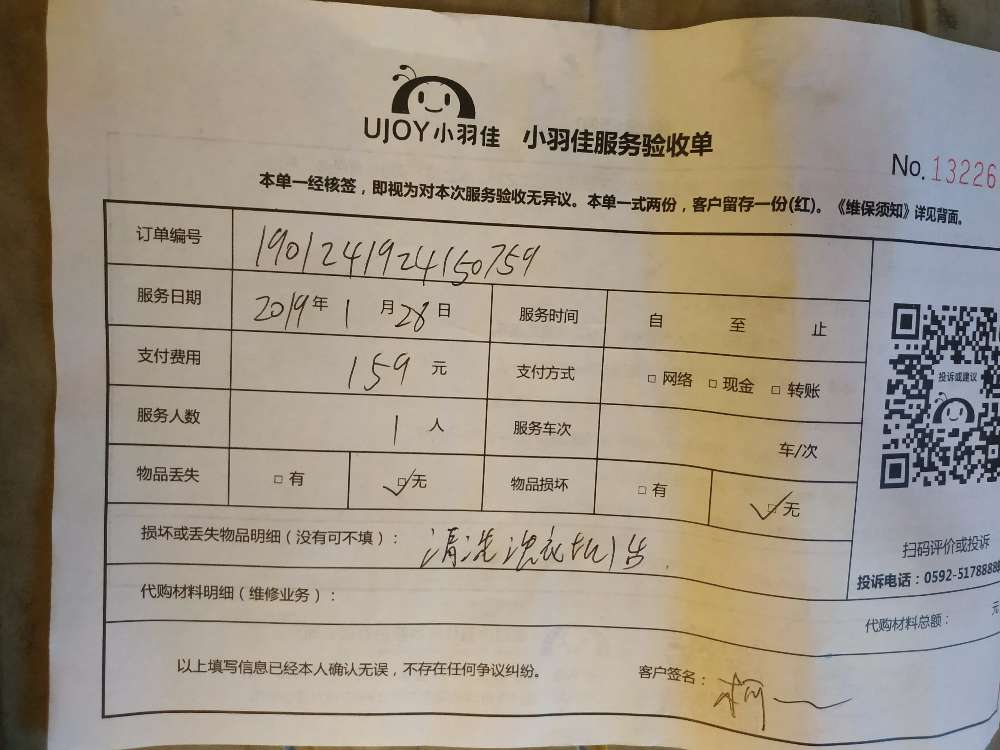 UJOY小羽佳 小羽佳服务验收单
No. 13226
本单一经核签，即视为对本次服务验收无异议。本单一式两份，客户留存一份(红)。《维保须知》详见背面。
订单编号 1901241924150759
服务日期 2019年1月28日 服务时间 自 至 止
支付费用 159元 支付方式 □网络 □现金 □转账
投诉或建议
服务人数 1人 服务车次 车/次
物品丢失 □有 ☑无 物品损坏 □有 ☑无
损坏或丢失物品明细（没有可不填）： 清洗洗衣机1台
扫码评价或投诉
投诉电话：0592-5178888
代购材料明细（维修业务）： 代购材料总额： 元
以上填写信息已经本人确认无误，不存在任何争议纠纷。 客户签名：